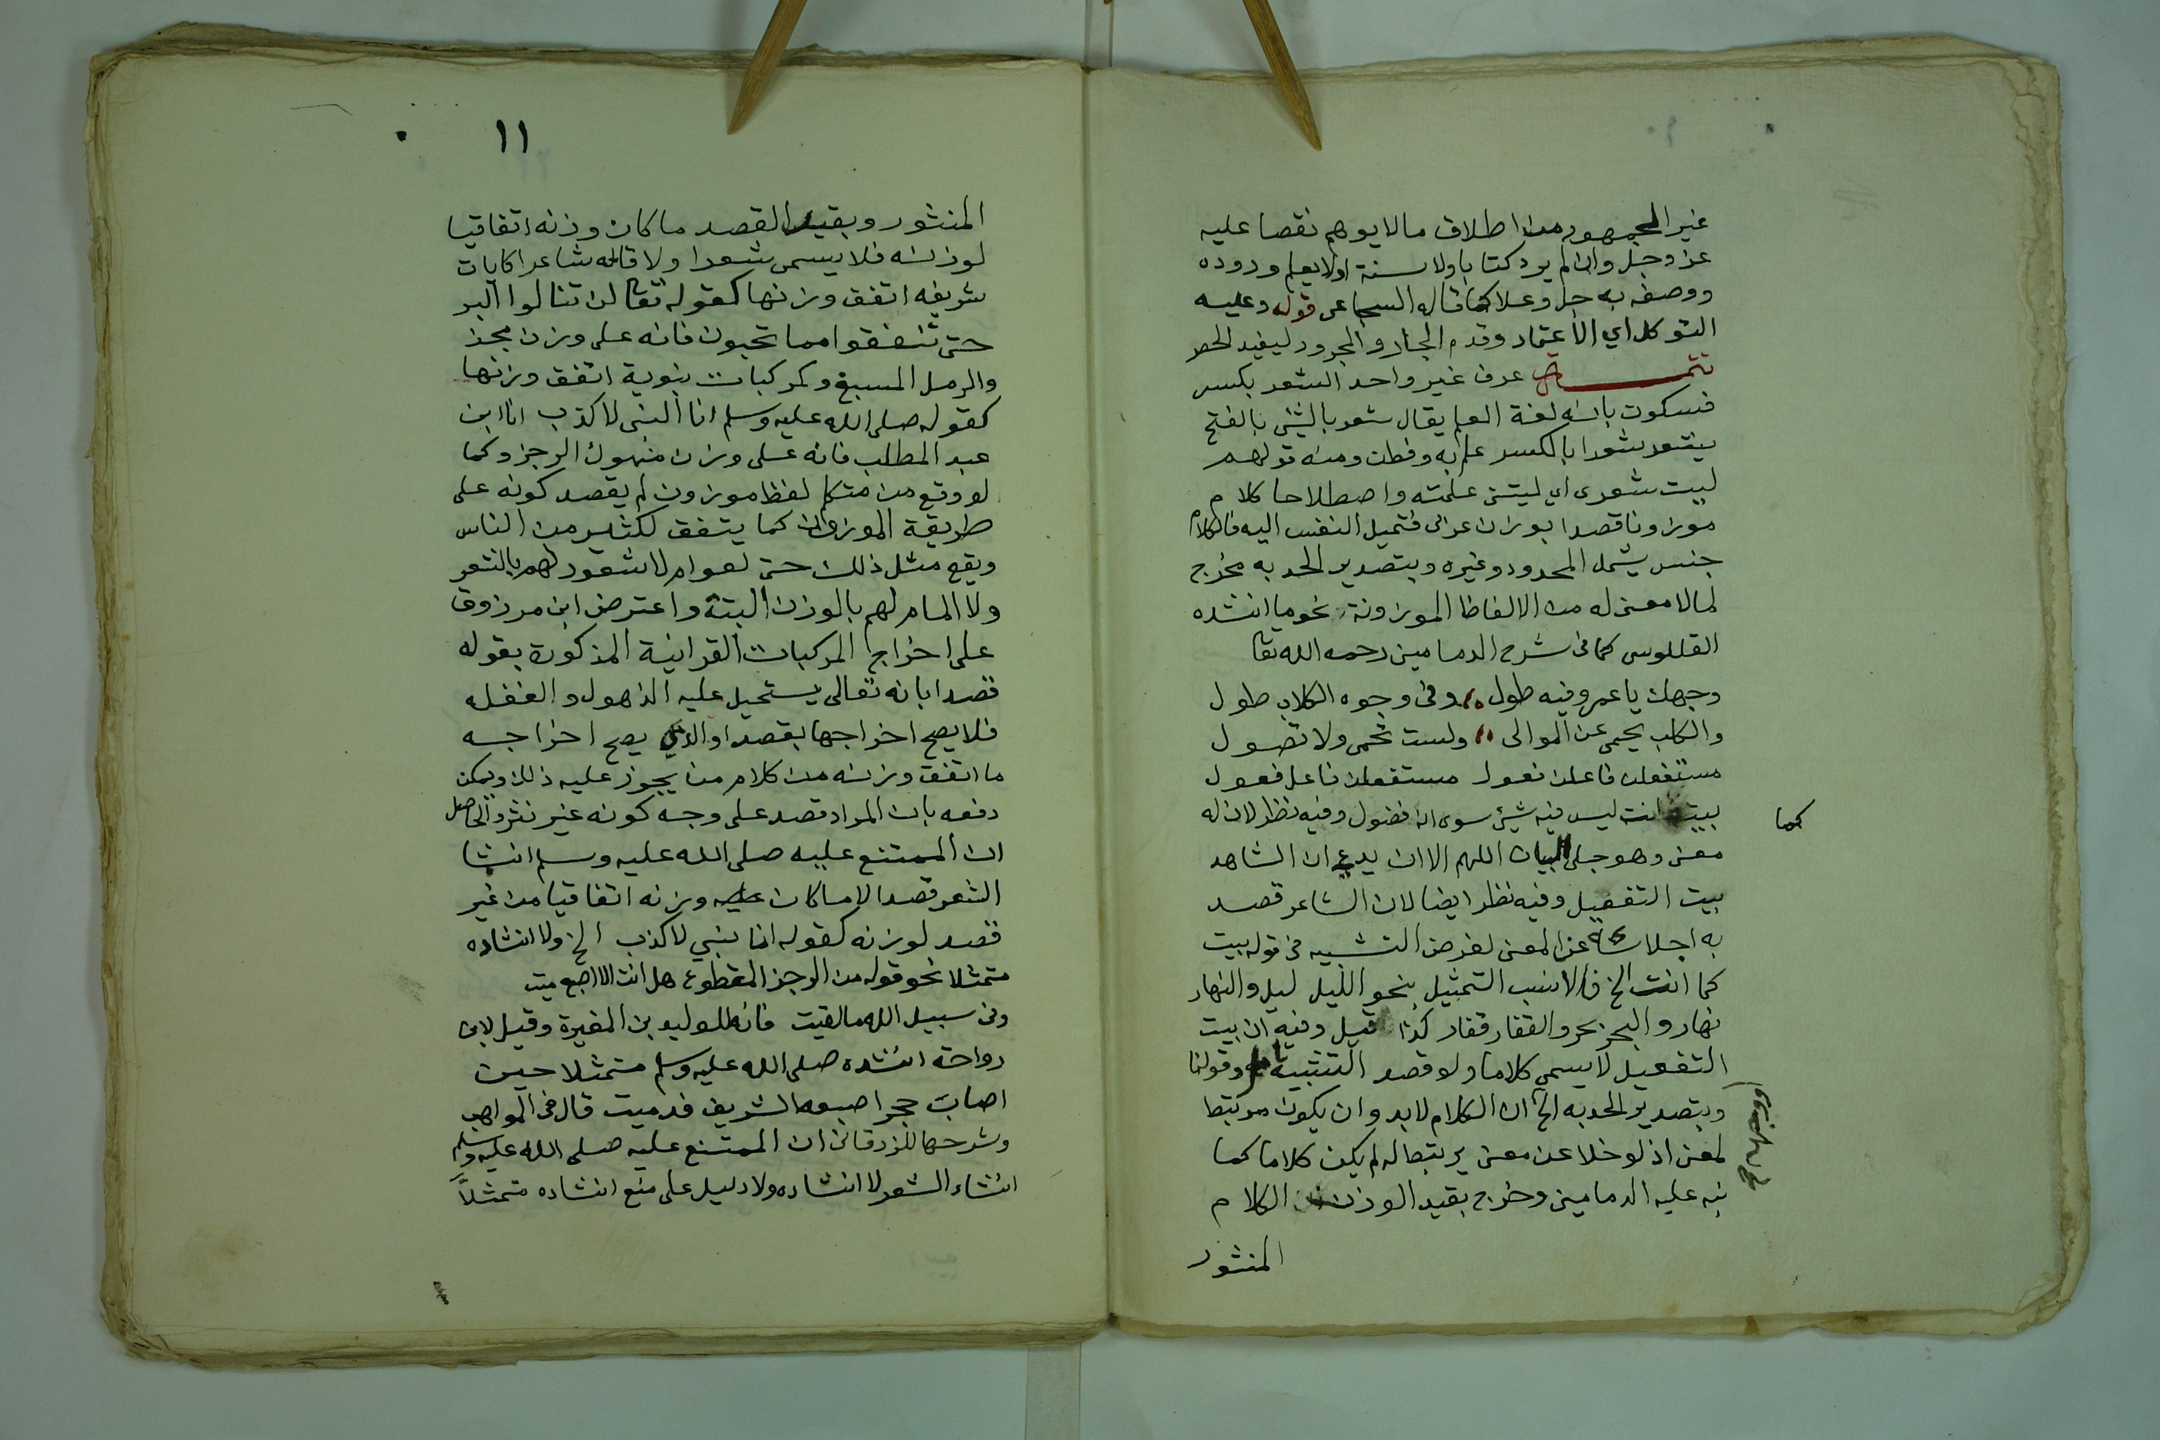 غير الجمهور من اطلاق مالا يوهم نقصا عليه
عز وجل وان لم يرد كتابا ولا سنة اولا يعلم وروده
ووصفه به جل وعلا كما قاله السجاعى قوله وعليه
التوكل اي الأعتماد وقدم الجار والمجرور ليفيد الحصر
تتمة عرف غير واحد الشعر بكسر
فسكون بانه لغة العلم يقال شعر بالشئ بالفتح
يشعر شعرا بالكسر علم به وفطن ومنه قولهم
ليت شعرى اي ليتنى علمته واصطلاحا كلام
موزونا قصدا بوزن عربى فتميل النفس اليه فالكلام
جنس يشمل المحدود وغيره وبتصدير الحد به مخرج
لمالا معنى له من الالفاظ الموزونة نحو ما انشده
القللوسى كما فى شرح الدمامينى رحمه الله تعا
وجهك يا عمرو فيه طول وفى وجوه الكلاب طول
والكلب يحمى عن الموالى ولست تحمى ولا تصول
مستفعلن فاعلن فعول مستفعلن فاعل فعول
بيت انت ليس فيه شيئ سوى انه فضول وفيه نظر لان له
كما
معنى وهو جلى البيان اللهم الا ان يدعى ان الشاهد
بيت التفعيل وفيه نظر ايضا لان الشاعر قصد
به اجلا عن المعنى لغرض التشبيه فى قوله بيت
كما انت الخ فالانسب التمثيل بنحو الليل ليل والنهار
نهار والبحر بحر والقفار قفار كذا قيل وفيه ان بيت
التفعيل لا يسمى كلاما ولو قصد التشبيه وقولنا
وبتصدير الحد به الخ ان الكلام لابد وان يكون مرتبطا
لمعنى اذ لو خلا عن معنى يرتبط له لم يكن كلاما كما
نبه عليه الدمامينى وخرج بقيد الوزن الكلام
المنثور
١١
المنثور وبقيد القصد ما كان وزنه اتفاقيا
لوزنه فلا يسمى شعرا ولا قاله شاعرا كايات
شريفه اتفق وزنها كقوله تعا لن تنالوا البر
حتى تنفقوا مما تحبون فانه على وزن مجز
والرمل المسبغ وكمركبات نبوية اتفق وزنها
كقوله صلى الله عليه وسلم انا النبى لا كذب انا ابن
عبد المطلب فانه على وزن منهوك الرجز وكما
لو وقع من متكلم لفظا موزون لم يقصد كونه على
طريقة الموزون كما يتفق لكثير من الناس
ويقع مثل ذلك حتى لعوام لا شعور لهم بالشعر
ولا المام لهم بالوزن البتة واعترض ابن مرزوق
على اخراج المركبات القرانية المذكورة بقوله
قصدا بانه تعالى يستحيل عليه الذهول والغفله
فلا يصح اخراجها بقصدا والذي يصح اخراجه
ما اتفق وزنه من كلام من يجوز عليه ذلك ويمكن
دفعه بان المراد قصد على وجه كونه غير نثر والحاصل
ان الممتنع عليه صلى الله عليه وسلم انشا
الشعر قصدا لا ما كان عليه وزنه اتفاقيا من غير
قصد لوزنه كقوله انا نبي لا كذب الخ ولا انشاده
متمثلا نحو قوله من الرجز المقطوع هل انت الا اصبع دميت
وفى سبيل الله ما لقيت فانه للوليد بن المغيرة وقيل لابن
رواحة انشده صلى الله عليه وسلم متمثلا حين
اصاب حجر اصبعه الشريف فدميت قال فى المواهب
وشرحها للزرقانى ان الممتنع عليه صلى الله عليه وسلم
انشاء الشعر لا انشاده ولا دليل على منع انشاده متمثلاً